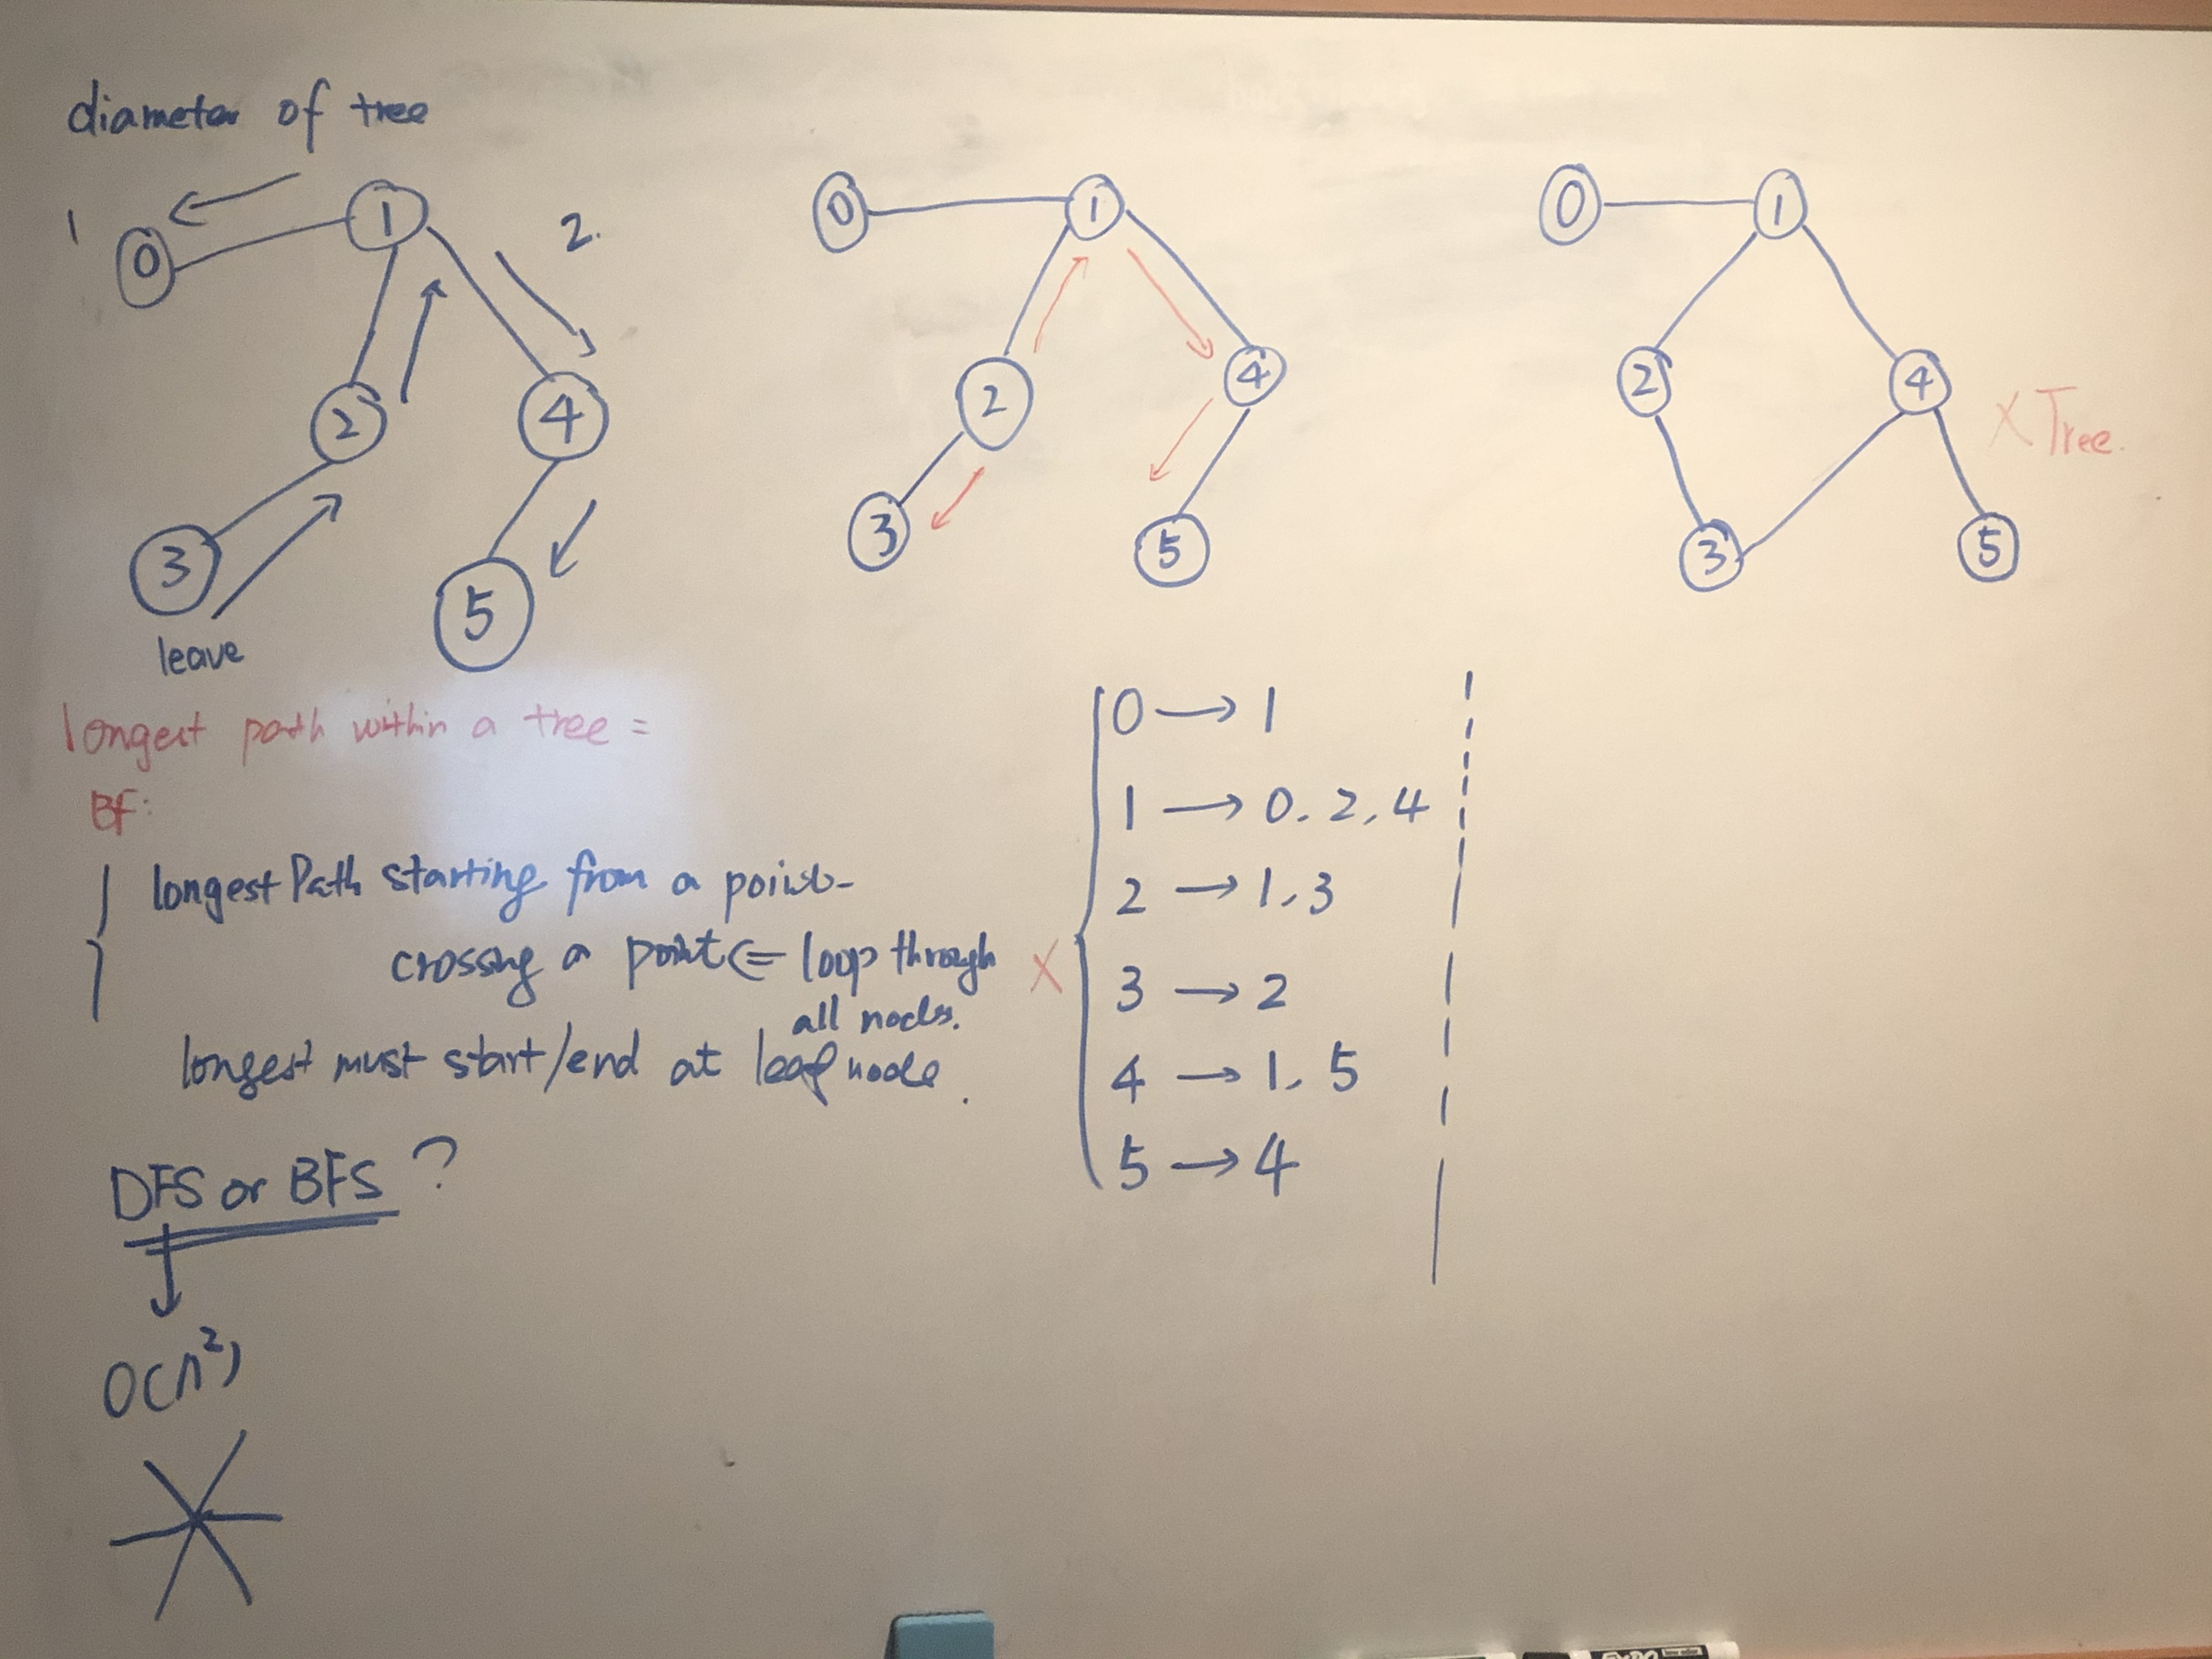 diameter of tree
1
0
1
2.
2
4
3
5
leave
0
1
2
4
3
5
0
1
2
4
3
5
X Tree.
longest path within a tree =
BF:
longest Path starting from a point
crossing a point <= loop through
all nodes.
longest must start/end at leaf node.
X
0 → 1
1 → 0. 2, 4
2 → 1, 3
3 → 2
4 → 1, 5
5 → 4
DFS or BFS ?
O(n²)
EXPO